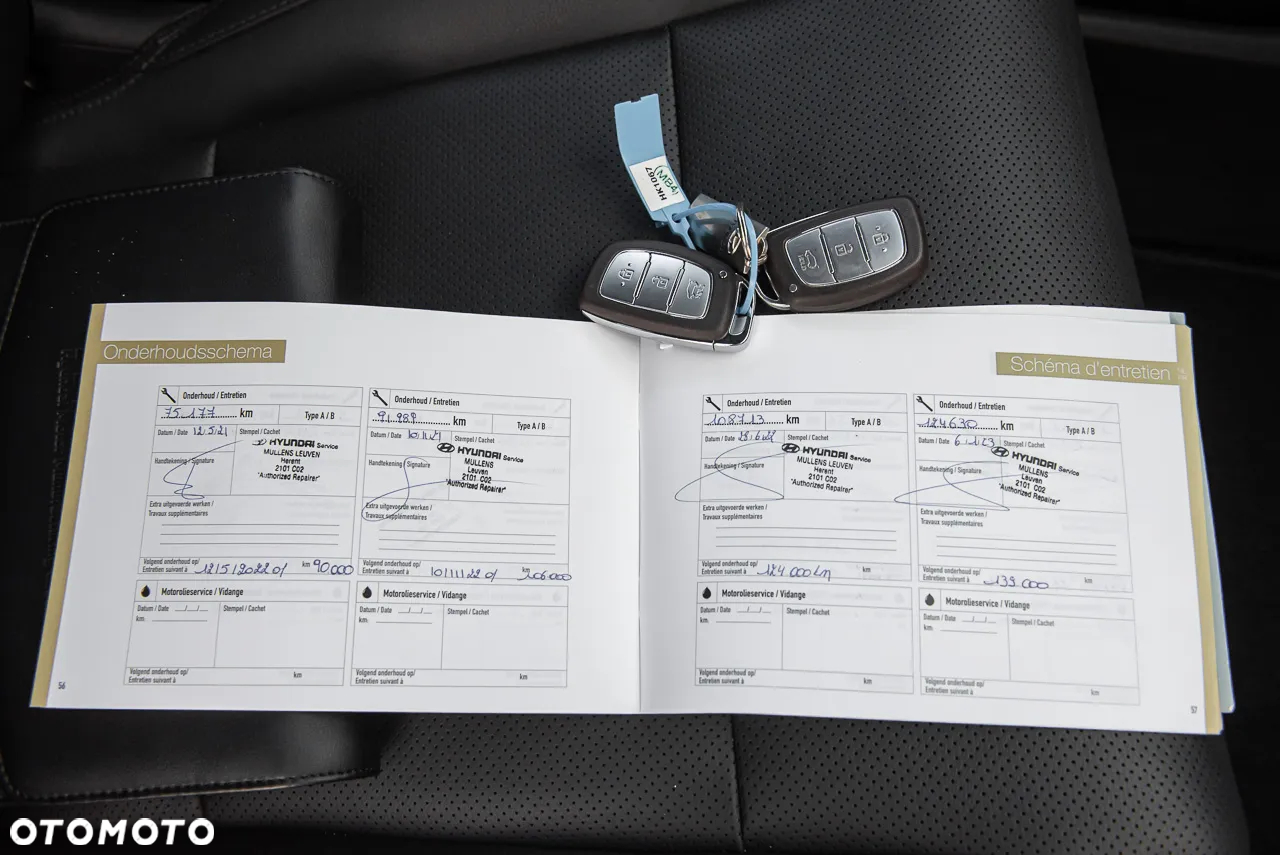 HK1067
Onderhoudsschema
Onderhoud / Entretien
75.177 km
Type A / B
Datum / Date 12/5/21
Stempel / Cachet
Handtekening / Signature
HYUNDAI Service
MULLENS LEUVEN
Herent
2101 C02
"Authorized Repairer"
Extra uitgevoerde werken /
Travaux supplémentaires
Volgend onderhoud op/
Entretien suivant à 12/5/2022 of km 90.000
Motorolieservice / Vidange
Datum / Date __/__/__
Stempel / Cachet
km:
Volgend onderhoud op/
Entretien suivant à
km
Onderhoud / Entretien
91.989 km
Type A / B
Datum / Date
Stempel / Cachet
Handtekening / Signature
HYUNDAI Service
MULLENS
Leuven
2101 C02
"Authorized Repairer"
Extra uitgevoerde werken /
Travaux supplémentaires
Volgend onderhoud op/
Entretien suivant à 10/11/22 of km 106.000
Motorolieservice / Vidange
Datum / Date __/__/__
Stempel / Cachet
km:
Volgend onderhoud op/
Entretien suivant à
km
56
Schéma d'entretien
Onderhoud / Entretien
108713 km
Type A / B
Datum / Date 28/6/22
Stempel / Cachet
Handtekening / Signature
HYUNDAI Service
MULLENS LEUVEN
Herent
2101 C02
"Authorized Repairer"
Extra uitgevoerde werken /
Travaux supplémentaires
Volgend onderhoud op/
Entretien suivant à 124.000 km
km
Motorolieservice / Vidange
Datum / Date __/__/__
Stempel / Cachet
km:
Volgend onderhoud op/
Entretien suivant à
km
Onderhoud / Entretien
124.630 km
Type A / B
Datum / Date 6/1/23
Stempel / Cachet
Handtekening / Signature
HYUNDAI Service
MULLENS
Leuven
2101 C02
"Authorized Repairer"
Extra uitgevoerde werken /
Travaux supplémentaires
Volgend onderhoud op/
Entretien suivant à 139.000
km
Motorolieservice / Vidange
Datum / Date __/__/__
Stempel / Cachet
km:
Volgend onderhoud op/
Entretien suivant à
km
57
OTOMOTO